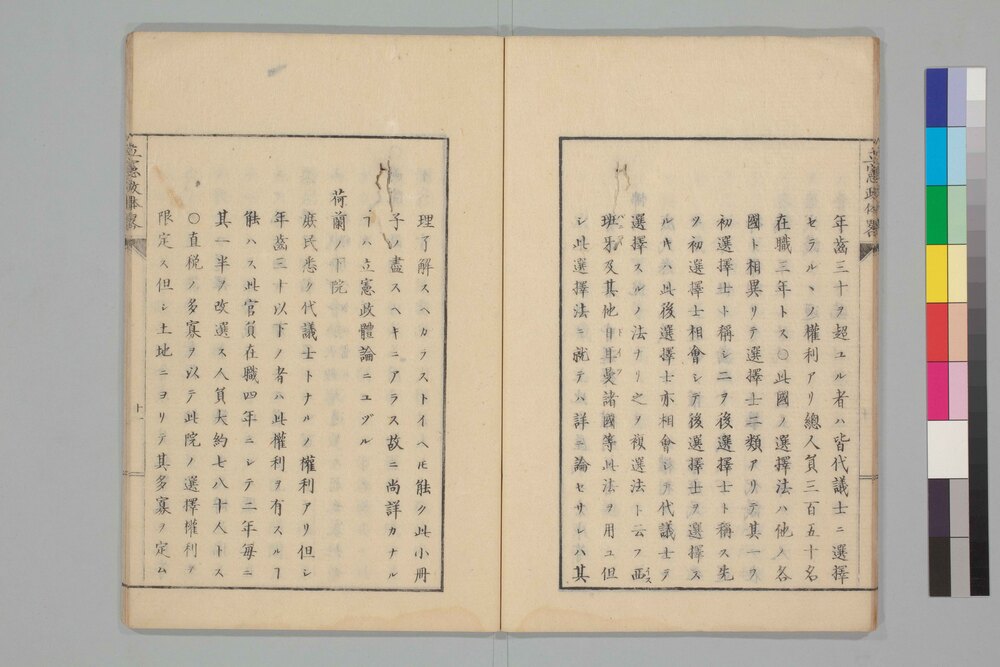 年齒三十ヲ超ユル者ハ皆代議士ニ選擇
セラルヽノ權利アリ總人員三百五十名
在職三年トス〇此國ノ選擇法ハ他ノ各
國ト相異リテ選擇士二類アリテ其一ヲ
初選擇士ト稱シ二ヲ後選擇士ト稱ス先
ヲ初選擇士相會シテ後選擇士ヲ選擇ス
ルキハ此後選擇士亦相會シテ代議士ヲ
選擇スルノ法ナリ之ヲ複選法ト云フ西
班牙及其他日耳曼諸國等此法ヲ用ユ但
シ此選擇法ニ就テハ詳ニ論セサレハ其
立憲政体略
理了解スヘカラストイヘ𪜈能ク此小冊
子ノ盡スヘキニアラス故ニ尚詳カナル
ヿハ立憲政體論ニユヅル
荷蘭ノ下院
庶民悉ク代議士トナルノ權利アリ但シ
年齒三十以下ノ者ハ此權利ヲ有スルヿ
能ハス此官員在職四年ニシテ二年每ニ
其一半ヲ改選ス人員大約七八十人トス
〇直税ノ多寡ヲ以テ此院ノ選擇權利ヲ
限定ス但シ土地ニヨリテ其多寡ヲ定ム
立憲政体略
十